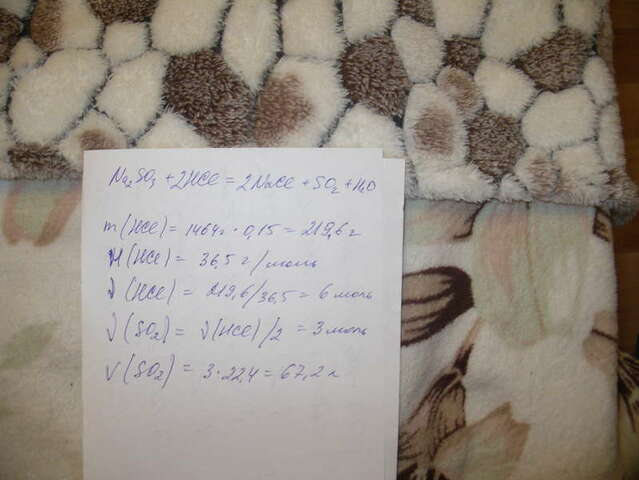 Na₂SO₃ + 2HCl = 2NaCl + SO₂ + H₂O
m(HCl) = 1464г · 0,15 = 219,6 г
M(HCl) = 36,5 г/моль
ν(HCl) = 219,6/36,5 = 6 моль
ν(SO₂) = ν(HCl)/2 = 3 моль
V(SO₂) = 3 · 22,4 = 67,2 л